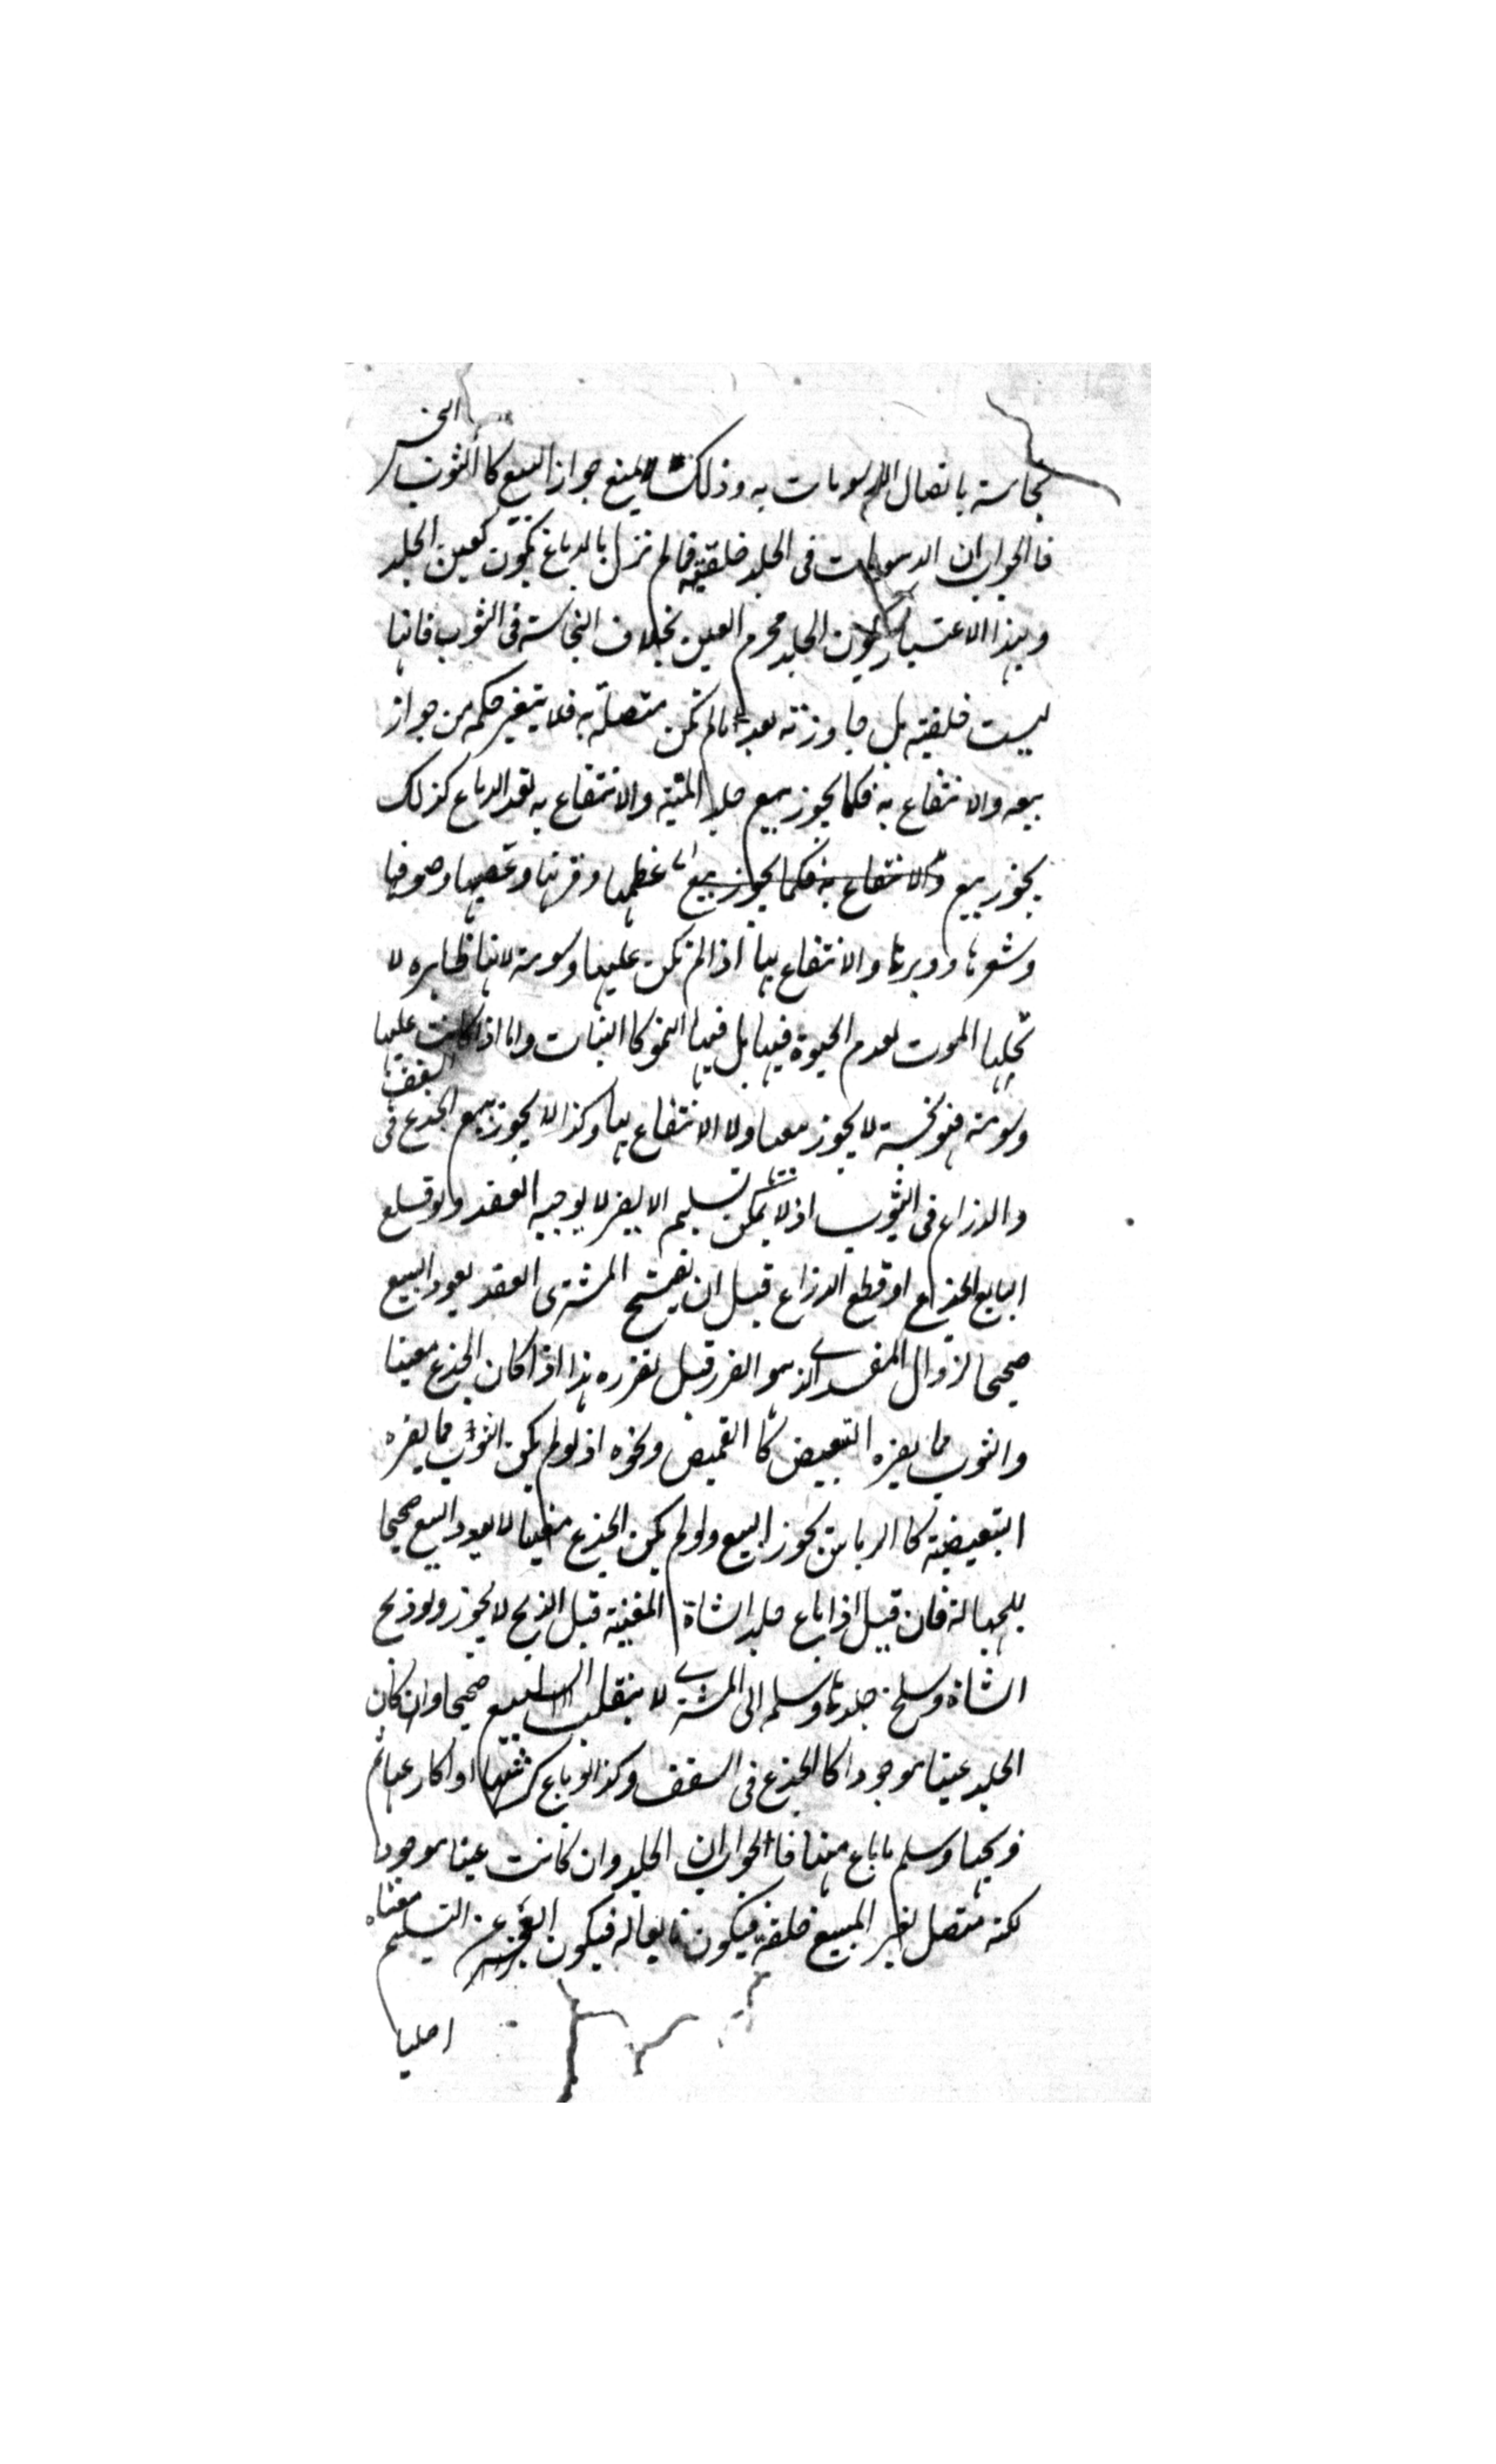 نجاسته باتصال الدسومات به وذلك لا يمنع جواز البيع كالثوب النجس
فالجواب ان الدسومات فى الجلد خلقية فما لم تزل بالدباغ يكون كعين الجلد
وبهذا الاعتبار يكون الجلد محرم العين بخلاف النجاسة فى الثوب فانها
ليست خلقية بل جاورته بعد مالم تكن متصلة به فلا يتغير حكمه من جواز
بيعه والانتفاع به فكما يجوز بيع جلد الميتة والانتفاع به بعد الدباغ كذلك
يجوز بيع والانتفاع به فكما يجوز بيع عظمها وقرنها وعصبها وصوفها
وشعرها ووبرها والانتفاع بها اذا لم تكن عليها دسومة لانها طاهرة لا
تحلها الموت لعدم الحيوة فيها بل فيها النمو كا النبات واما اذا كانت عليها
دسومة فهو نجسة لا يجوز بيعها ولا الانتفاع بها وكذا لا يجوز بيع الجذع فى السقف
والذراع فى الثوب اذ لا يمكن تسليم الا بضرر لا يوجبه العقد ولو قلع
البايع الجذع او قطع الذراع قبل ان يفسخ المشترى العقد يعود البيع
صحيحا لزوال المفسد الذى هو الضرر قبل تقرره هذا اذا كان الجذع معينا
والثوب مما يضره التبعيض كا القميص ونحوه اذ لو لم يكن الثوب مما يضره
التبعيضة كا الرباس يجوز البيع ولو لم يكن الجذع معينا لا يعود البيع صحيحا
للجهالة فان قيل اذا باع جلد الشاة المعينة قبل الذبح لا يجوز ولو ذبح
الشاة وسلخ جلدها وسلم الى المشترى لا ينقلب البيع صحيحا وان كان
الجلد عينا موجودا كا الجذع فى السقف وكذا لو باع كرشها او اكارعها ثم
ذبحها وسلم ما باع منها فا الجواب ان الجلد وان كانت عينا موجودا
لكنه متصل بغير المبيع خلقة فيكون تابعا له فيكون العجز عن التسليم معناه
اصليا